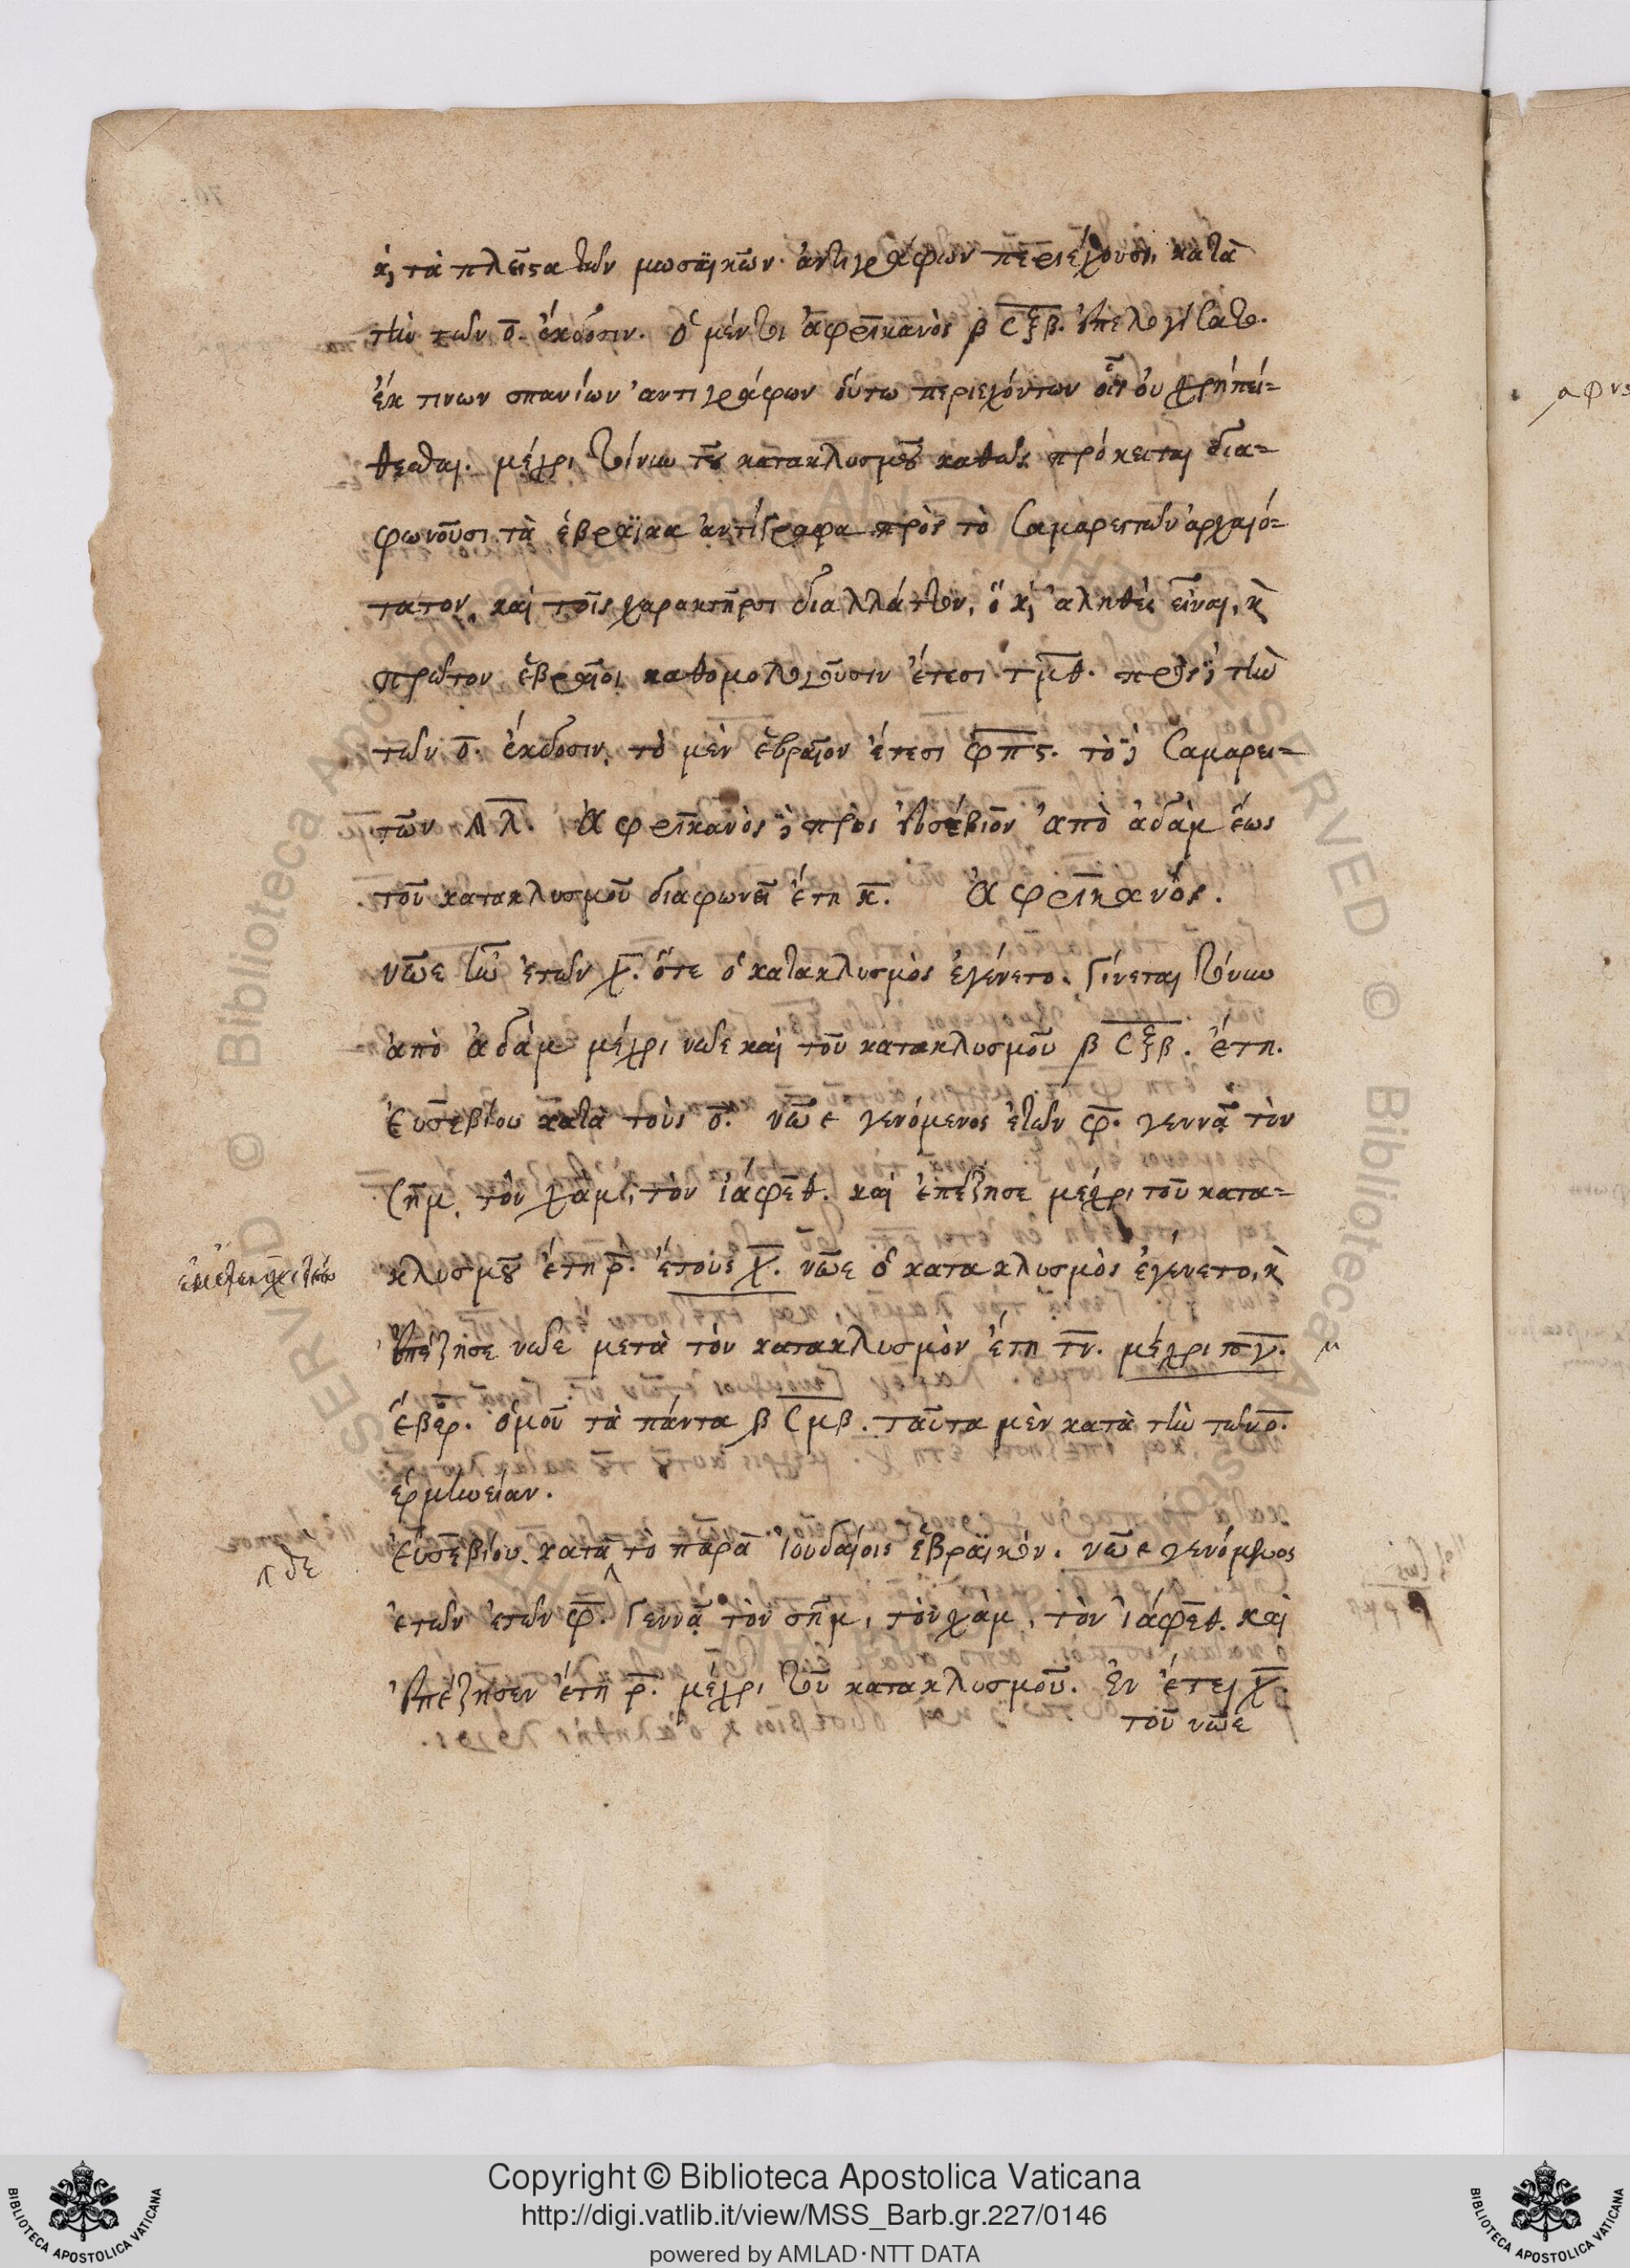 κ̀ τὰ πλεῖστα τῶν μωσαϊκῶν ἀντιγράφων περιέχουσι, κατὰ
τὴν τῶν ο̅. ἔκδοσιν. ὁ μέντοι ἀφρικανὸς β̅ϲ̅ξ̅β̅. ἐπελογίσατο.
ἐκ τινων σπανίων ἀντιγράφων οὕτω περιεχόντων οἷς οὐ χρὴ πεί=
θεσθαι. μέχρι τοίνυν τοῦ κατακλυσμοῦ καθὼς πρόκειται δια=
φωνοῦσι τὰ ἑβραϊκὰ ἀντίγραφα πρὸς τὸ Σαμαρειτῶν ἀρχαιό=
τατον, καὶ τοῖς χαρακτῆρσι διαλλάττον, ὃ κ̀ ἀληθὲς εἶναι, κ̀
πρῶτον ἑβραῖοι καθομολογοῦσιν ἔτεσι τ̅μ̅θ̅. πρὸς δὲ τὴν
τῶν ο̅. ἔκδοσιν, τὸ μὲν ἑβραῖον ἔτεσι φ̅π̅ς̅. τὸ δὲ Σαμαρει=
τῶν λ̅. Ἀφρικανὸς δὲ πρὸς εὐσέβιον ἀπὸ ἀδὰμ ἕως
τοῦ κατακλυσμοῦ διαφωνεῖ ἔτη κ̅. Ἀφρικανός.
νῶε ἦν ἐτῶν χ̅. ὅτε ὁ κατακλυσμὸς ἐγένετο. Γίνεται τοίνυν
ἀπὸ ἀδὰμ μέχρι νῶε καὶ τοῦ κατακλυσμοῦ β̅ϲ̅ξ̅β̅. ἔτη.
Εὐσεβίου κατὰ τοὺς ο̅. νῶε γενόμενος ἐτῶν φ̅. γεννᾷ τὸν
Σῆμ, τὸν χὰμ, τὸν ἰάφεθ. καὶ ἐπέζησε μέχρι τοῦ κατα=
κλυσμοῦ ἔτη ρ̅. ἔτους χ̅. νῶε ὁ κατακλυσμὸς ἐγένετο, κ̀
ἐπέζησε νῶε μετὰ τὸν κατακλυσμὸν ἔτη τ̅ν̅. μέχρι π̅γ̅.
ἔβερ. ὁμοῦ τὰ πάντα β̅ϲ̅μ̅β̅. ταῦτα μὲν κατὰ τὴν τῶν ο̅.
ἑρμηνείαν.
δὲ
Εὐσεβίου κατὰ τὸ παρὰ Ἰουδαίοις ἑβραϊκόν. νῶε γενόμενος
ἐτῶν ἐτῶν φ̅. Γεννᾷ τὸν σῆμ, τὸν χὰμ, τὸν ἰάφεθ. καὶ
ἐπέζησεν ἔτη ρ̅. μέχρι τοῦ κατακλυσμοῦ. Ἐν ἔτει χ̅.
τοῦ νῶε
Copyright © Biblioteca Apostolica Vaticana
http://digi.vatlib.it/view/MSS_Barb.gr.227/0146
powered by AMLAD·NTT DATA
BIBLIOTECA APOSTOLICA VATICANA
BIBLIOTECA APOSTOLICA VATICANA